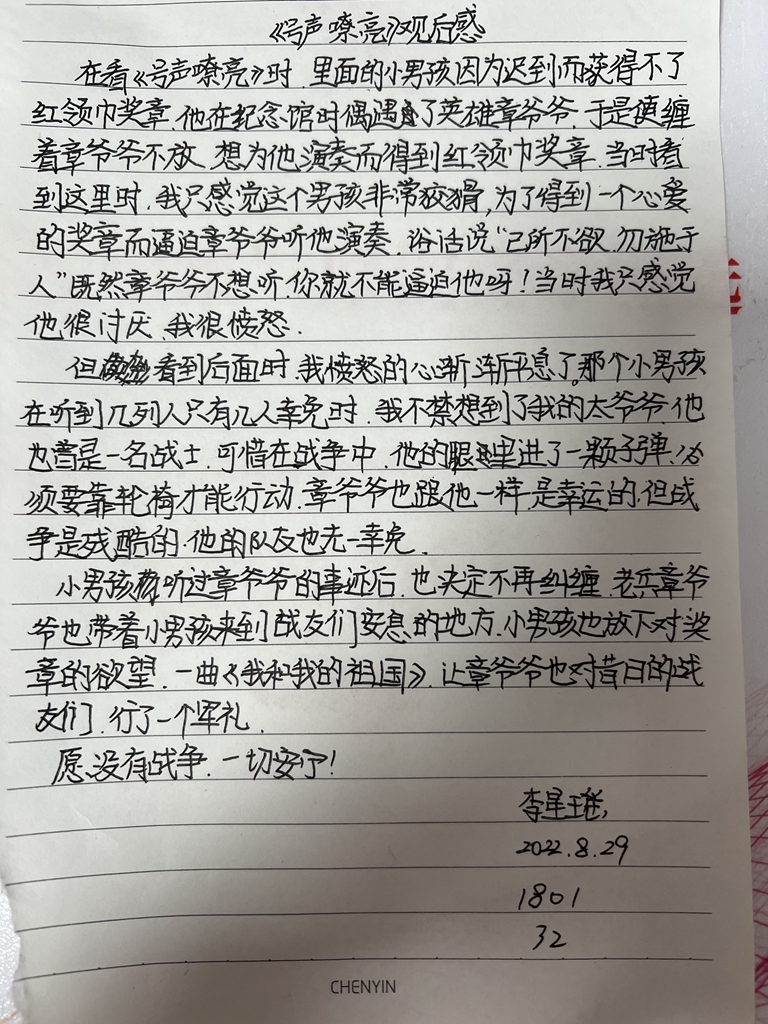 《号声嘹亮》观后感
在看《号声嘹亮》时.里面的小男孩因为迟到而获得不了
红领巾奖章.他在纪念馆时偶遇了英雄章爷爷.于是便缠
着章爷爷不放.想为他演奏而得到红领巾奖章.当时看
到这里时.我只感觉这个男孩非常狡猾,为了得到一个心爱
的奖章而逼迫章爷爷听他演奏.俗话说“己所不欲.勿施于
人”既然章爷爷不想听.你就不能逼迫他呀!当时我只感觉
他很讨厌.我很愤怒.
但看到后面时.我愤怒的心渐渐平息了。那个小男孩
在听到几列人只有几人幸免时.我不禁想到了我的太爷爷.他
也曾是一名战士.可惜在战争中.他的眼里进了一颗子弹.必
须要靠轮椅才能行动.章爷爷也跟他一样.是幸运的.但战
争是残酷的.他的队友也无一幸免.
小男孩听过章爷爷的事迹后.也决定不再纠缠.老兵章爷
爷也带着小男孩来到战友们安息的地方.小男孩也放下对奖
章的欲望.一曲《我和我的祖国》.让章爷爷也对昔日的战
友们.行了一个军礼.
愿没有战争.一切安宁!
李星
2022.8.29
1801
32
CHENYIN